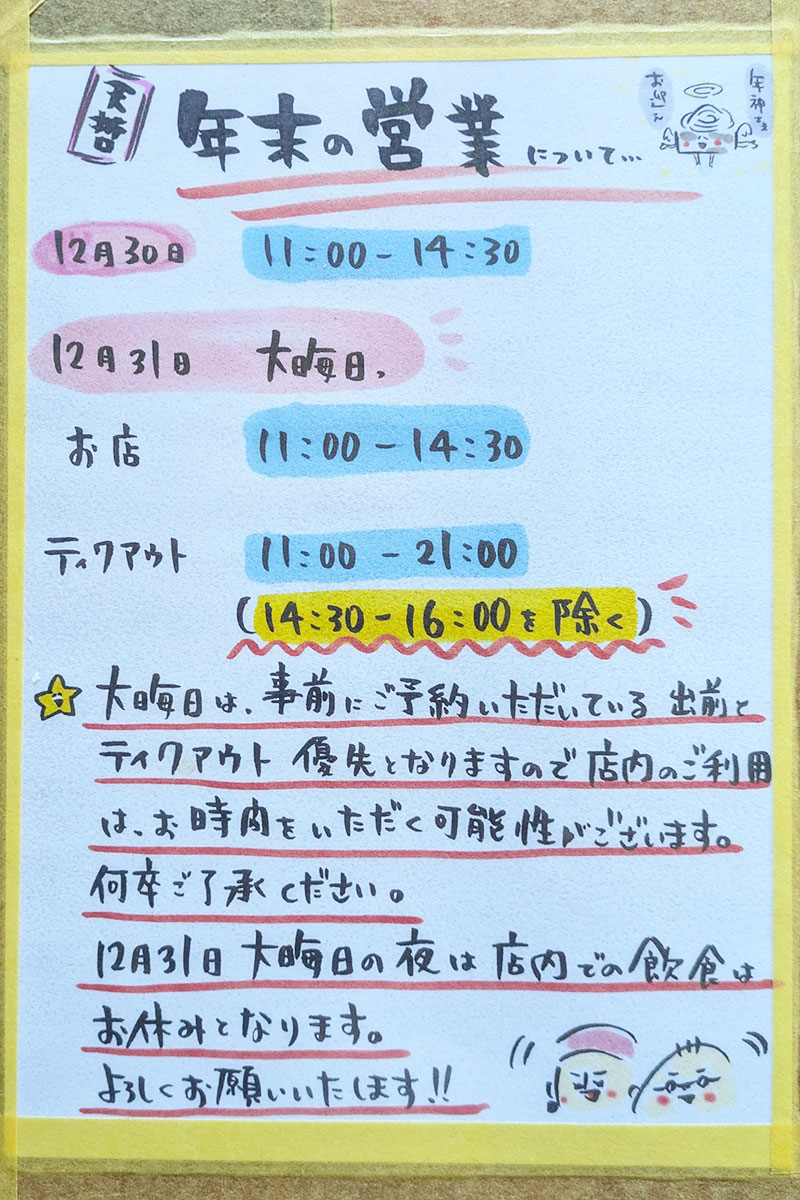 天哲
年末の営業について…
年神さま
お迎え
12月30日 11:00-14:30
12月31日 大晦日。
お店 11:00-14:30
ティクアウト 11:00 -21:00
(14:30-16:00を除く)
大晦日は、事前にご予約いただいている出前と
ティクアウト 優先となりますので店内のご利用
は、お時間をいただく可能性がございます。
何卒ご了承ください。
12月31日 大晦日の夜は店内での飲食は
お休みとなります。
よろしくお願いいたします!!